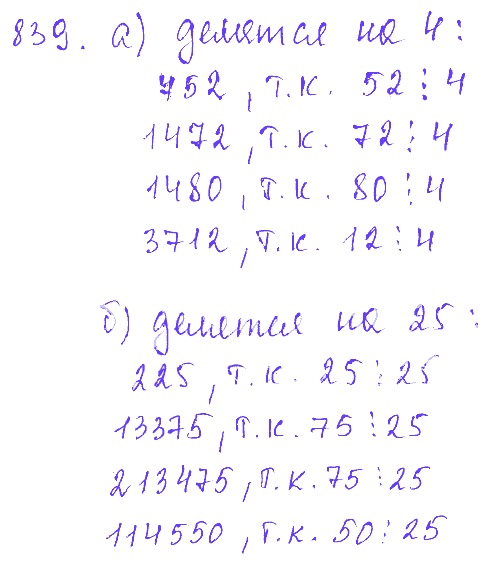 839. а) делятся на 4:
752, т.к. 52⋮4
1472, т.к. 72⋮4
1480, т.к. 80⋮4
3712, т.к. 12⋮4
б) делятся на 25:
225, т.к. 25⋮25
13375, т.к. 75⋮25
213475, т.к. 75⋮25
114550, т.к. 50⋮25